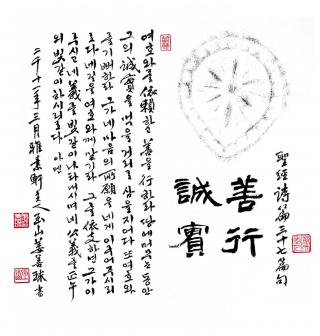 聖經詩篇三十七篇句
善行
誠實
여호와를 依賴하여 善을 行하라 땅에 머무는 동안
그의 誠實을 먹을거리로 삼을지어다 또 여호와
를 기뻐하라 그가 네 마음의 所願을 네게 이루어 주시리
로다 네 길을 여호와께 맡기라 그를 依支하면 그가 이
루시고 네 義를 빛같이 나타내시며 네 公義를 正午
의 빛같이 하시리로다 아멘
二千十一年三月 主人玉山 善 書